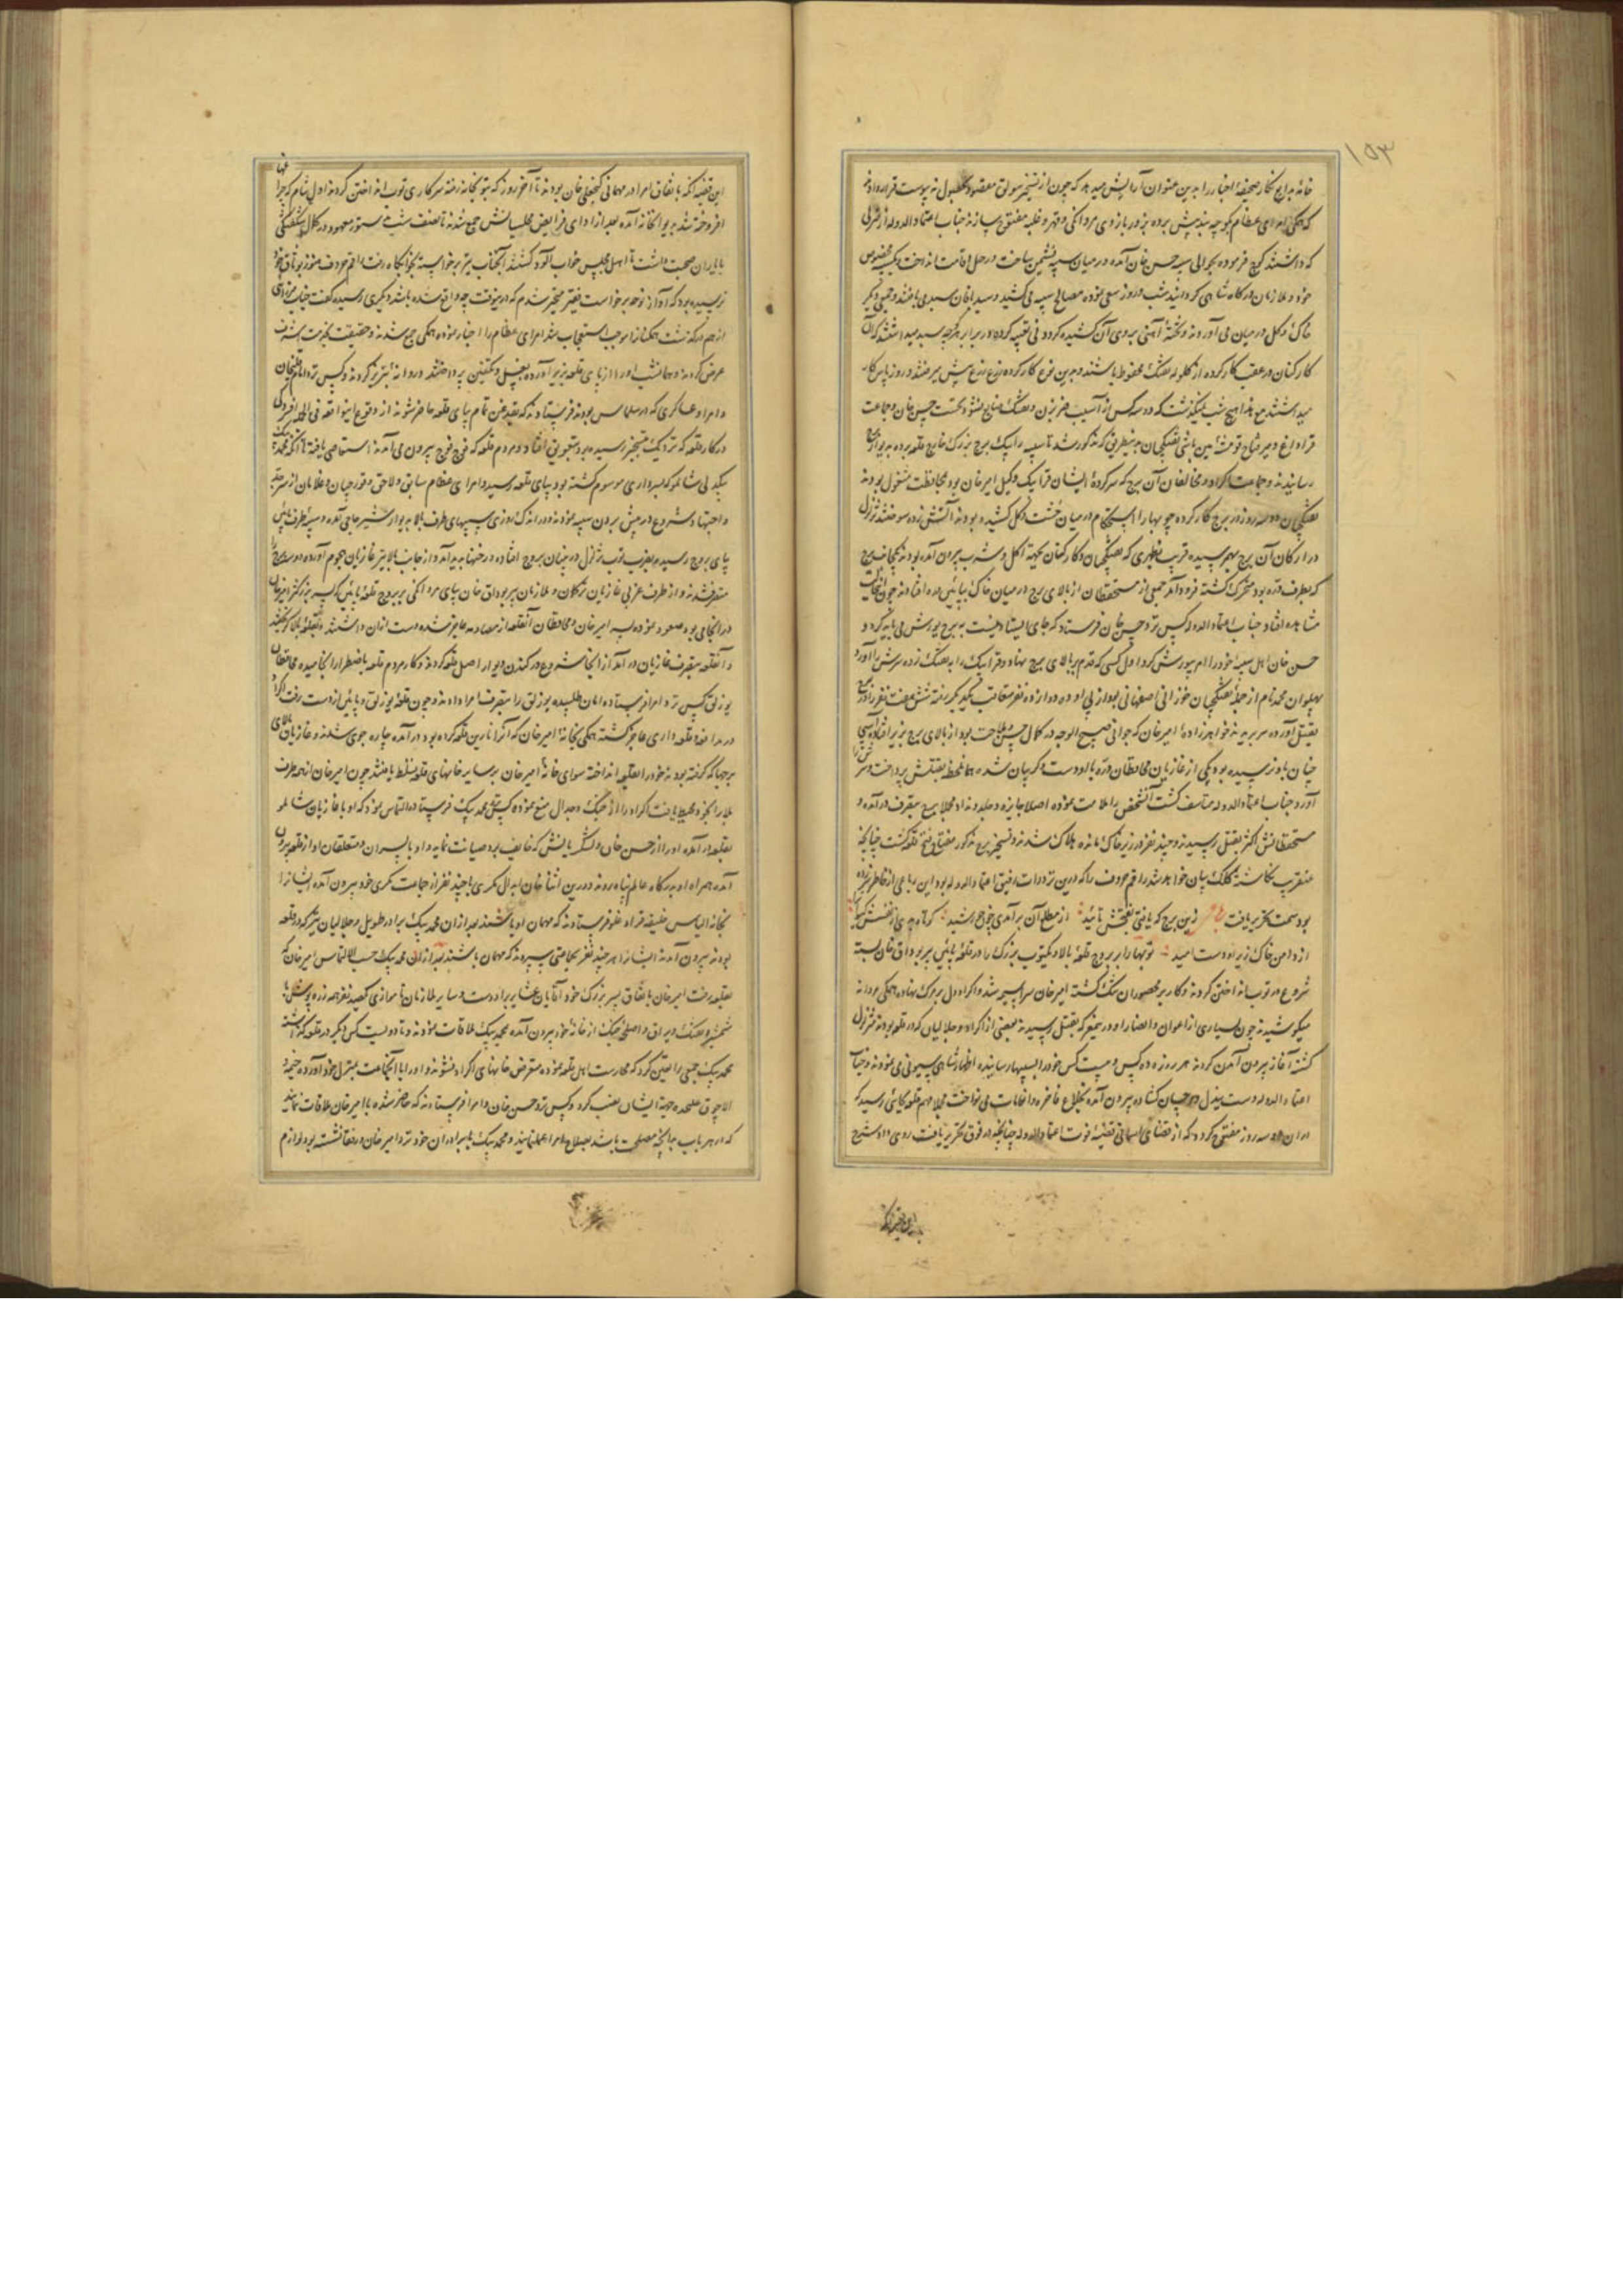 خانهٔ بدایع نگار صحیفهٔ اخبار را بدین عنوان آرایش میدهد که چون از تسخیر سولق مقصود بحصول نه پیوست قرار دادند
که همگی امرای عظام کوچه بند پیش برده بزور بازوی مردانگی و قهر و غلبه مفتوح سازند جناب اعتمادالدوله از منزلی
که داشتند کوچ فرموده بحوالی سیبه حسن خان آمده در میان سیبه نشیمن ساخت و رحل اقامت انداخت
خود و ملازمان درگاه شاهی گردانیده شب و روز سعی نموده مصالح سیبه می کشید و سید آقان سبدی بافتند و جمعی دیگر
خاک و گل در میان می آوردند و تختهٔ آهنی بر روی آن کشیده گردونی تعبیه کرده در برابر هر سبد میداشتند که آن
کارکنان در عقب کار کرده از گلولهٔ تفنگ محفوظ باشند و بدین نوع کار کرده ذرع ذرع پیش میرفتند و روز پاس کار
میداشتند مع هذا هیچ شب نمیگذشت که دو سه کس از آسیب ضربزن و تفنگ ضایع نشود نخست حسن خان و جماعت
رسانیدند و جماعت اکراد و مخالفان آن برج که سرکردهٔ ایشان قرا بیک وکیل امیر خان بود بمحافظت مشغول بودند
تفنگچیان دو سه روز در برج کار کرده چوبها را استحکام در میان خشت و گل کشیده بودند آتش زده سوختند تزلزل
در ارکان آن برج بهم رسیده قریب بظهری که تفنگچیان و کارکنان بجهة اکل و شرب بیرون آمده بودند یکجانب برج
که بطرف دره بود متحرک گشته فرود آمد جمعی از مستحفظان از بالای برج در میان خاک بپائین دره افتادند
مشاهده افتاد جناب اعتمادالدوله کس نزد حسن خان فرستاد که جای ایستادن نیست به برج یورش می باید کرد و
حسن خان اهل سیبهٔ خود را امر بیورش کرد اول کسی که قدم بر بالای برج نهاد و قرا بیک را به تفنگ زده سرش را آورد
پهلوان محمد نام از جملهٔ تفنگچیان خوزانی اصفهانی بود از پی او ده دوازده نفر متعاقب یکدیگر رفته شش هفت نفر را در برج
بقتل آورده سر بریدند خواهرزادهٔ امیر خان که جوانی صبیح الوجه در کمال حسن و ملاحت بود از بالای برج بزیر افتاد
چنان باو نرسیده بود یکی از غازیان محافظان دره باو دست و گریبان شده همان لحظه بقتلش پرداخت و سرش را
آورد جناب اعتمادالدوله متاسف گشت آن شخص را ملامت نموده اصلا جایزه و جلدو نداد مجملا برج بتصرف درآمده
مستحفظانش اکثر بقتل رسیدند و چند نفر در زیر خاک مانده هلاک شدند و تسخیر برج مذکور مفتاح فتح قلعه گشت چنانچه
عنقریب نگاشتهٔ کلک بیان خواهد شد راقم حروف را که درین ترددات رفیق اعتمادالدوله بود این رباعی از خاطر سر زده
بود سمت تحریر یافت زین برج که یافتی بفتحش تائید از مطلع آن برآمدی چون خورشید
از دامن خاک زیر او دست امید توپها را بر بروج قلعهٔ بالا و یک توپ بزرگ را در قلعهٔ پائین پیر بوداق خان بسته
شروع در توپ انداختن کردند و کار بر محصوران تنگ گشته امیر خان سراسیمه شد و اکراد دل بر مرگ نهاده همگی مردانه
میکوشیدند چون بسیاری از اعوان و انصار او درین معرکه بقتل رسیدند بعضی از اکراد و جلالیان که در قلعه بودند متزلزل
گشته آغاز بیرون آمدن کردند هر روزه ده کس و بیست کس خود را بسیبها رسانیده اظهار شاهی سیونی می نمودند و جناب
اعتمادالدوله دست بذل و احسان گشاده بیرون آمده بخلاع فاخره و انعامات می نواخت مجملا مهم قلعه بجائی رسید که
در آن دو سه روز مفتوح گردد که از قضای آسمانی قضیهٔ فوت اعتمادالدوله چنانچه در فوق تحریر یافت روی داد و شرح
این قضیه آنکه باتفاق امرا در مهمانی گنجعلی خان بودند تا آخر روز که بتوپخانه رفته سرکاری توپ انداختن کردند اول شام که چراغها
افروخته شد بدیوانخانه آمده بعد از ادای فرایض مجلسیانش جمع شدند تا نصف شب بدستور معهود در کمال شگفتگی
با یاران صحبت داشت تا اهل مجلس خواب آلود گشتند آنجناب نیز برخواسته بخوابگاه رفت راقم حروف هنوز بوثاق خود
نرسیده بود که آواز نوحه برخواست فقیر متحیر شدم که درینوقت چه واقع شده باشد دیگری رسیده گفت جناب میرزای
از هم درگذشت همگنانرا موجب استعجاب شد امرای عظام را اخبار نموده همگی جمع شدند و حقیقت بخدمت اشرف
عرض کردند و همانشب او را از پای قلعه بزیر آورده بغسل و تکفین پرداختند و روانهٔ تبریز کردند و کس نزد امام قلیخان
و امرا و عساکری که در سلماس بودند فرستادند که بقدغن تمام بپای قلعه حاضر شوند از وقوع اینواقعه فی الجمله افسردگی
در کار قلعه که نزدیک بتسخیر رسیده بود بتعویق افتاد و مردم قلعه که فوج فوج بیرون می آمدند استقامتی یافته تا آنکه محمد بیک
بیکدلی شاملو که بسرداری موسوم گشته بود بپای قلعه رسید و امرای عظام سابق و لاحق و قورچیان و غلامان از سر جد
و اجتهاد شروع در پیش بردن سیبه نمودند و در اندک روزی سیبهای طرف بالا بدیوار شیر حاجی آمده و سیبهٔ طرف پائین
بپای بروج رسیده بضرب توپ تزلزل در بنیان بروج افتاده رخنها پدید آمد و از جانب بالا نیز غازیان هجوم آورده دو سه برج را
متصرف شدند و از طرف غربی غازیان ترکمان و ملازمان پیر بوداق خان بپای مردانگی بر بروج قلعهٔ پائین که پسر بزرگتر امیر خان
در آنجا می بود صعود نموده پسر امیر خان و محافظان آنقلعه از مصادمه عاجز شده دست از آن داشتند و بقلعهٔ بالا گریختند
و آنقلعه بتصرف غازیان درآمد از آنجا شروع در کندن دیوار اصل قلعه کردند و کار مردم قلعه باضطرار انجامیده محافظان
بوزلق کس نزد امرا فرستاده امان طلبیده بوزلق را بتصرف امرا دادند و چون قلعهٔ بوزلق و پائین از دست رفت اکراد
در مدافعه و قلعه داری عاجز گشته همگی بخانهٔ امیر خان که آنرا نارین قلعه کرده بود درآمده چاره جوی شدند و غازیان بالای
برجها که گرفته بودند خود را بقلعه انداخته سوای خانهٔ امیر خان بر سایر خانهای قلعه تسلط یافتند چون امیر خان از همه طرف
بلا را بخود محیط یافت اکراد را از جنگ و جدال منع نموده کس پیش محمد بیک فرستاده التماس نمود که او با غازیان شاملو
بقلعه درآمده او را از حسن خان و لشکریانش که خایف بود صیانت نماید و او با پسران و متعلقان او از قلعه بیرون
آمده همراه او بدرگاه عالم پناه روند و درین اثنا خان ابدال مکری با چند نفر از جماعت مکری خود بیرون آمده ایشانرا
بخانهٔ الیاس خلیفه قراداغلو فرستادند که مهمان او باشند بعد از آن محمد بیک برادر طویل و جلالیان نیز که در قلعه
بودند بیرون آمدند ایشانرا هر چند نفر بجماعتی سپردند که مهمان باشند بعد از آن محمد بیک حسب الالتماس امیر خان که
بقلعه رفت امیر خان باتفاق پسر بزرگ خود و آقایان عشایر برادوست و سایر ملازمان تا موازی یکصد نفر همه زره پوش
شمشیر و تفنگ و یراق و اسلحهٔ جنگ از خانهٔ خود بیرون آمده محمد بیک ملاقات نمودند و تا دویست کس دیگر در قلعه گذاشته
محمد بیک جمعی را تعیین کرد که محارست اهل قلعه نموده متعرض خانهای اکراد نشوند و او را با آنجماعت بمنزل خود آورده خیمهٔ
الاچوق علیحده بجهة ایشان نصب کرد و کس نزد حسن خان و امرا فرستادند که حاضر شده با امیر خان ملاقات نمایند
که از هر باب چنانچه مصلحت باشد بصلاح امرا عمل نمایند و محمد بیک با برادران خود نزد امیر خان و رفقا نشسته بود لوازم